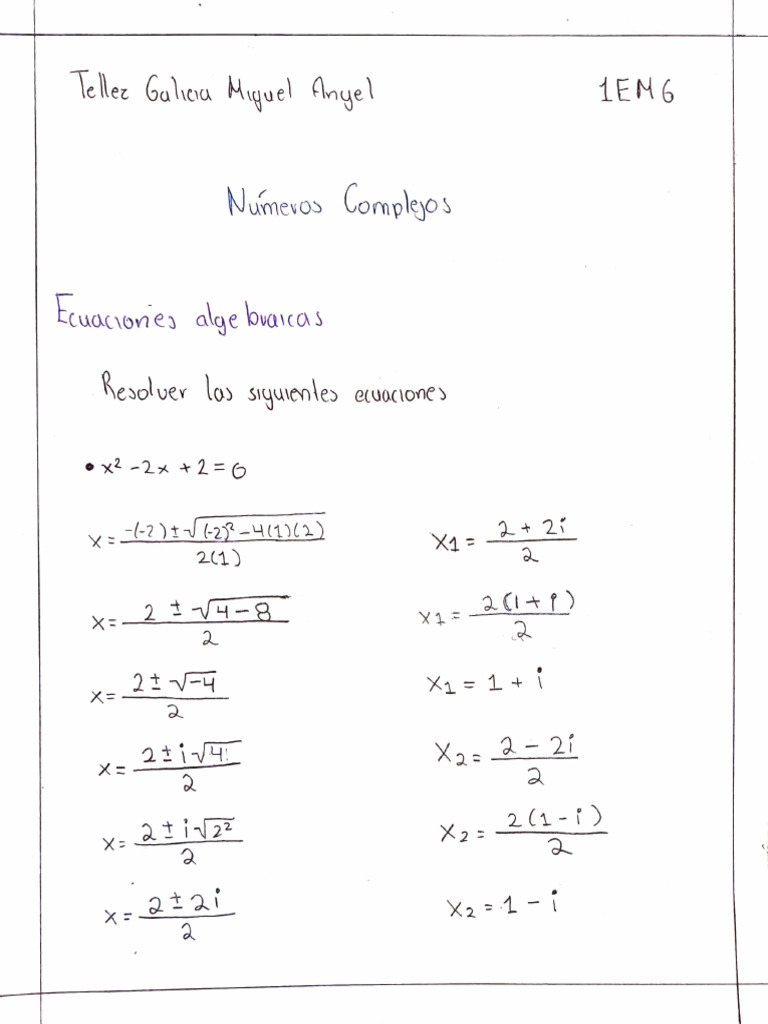 Tellez Galicia Miguel Angel 1EM6
Números Complejos
Ecuaciones algebraicas
Resolver las siguientes ecuaciones
• x² - 2x + 2 = 0
x = -(-2) ± √(-2)² - 4(1)(2) / 2(1)
x = 2 ± √4 - 8 / 2
x = 2 ± √-4 / 2
x = 2 ± i√4 / 2
x = 2 ± i√2² / 2
x = 2 ± 2i / 2
x1 = 2 + 2i / 2
x1 = 2(1 + i) / 2
x1 = 1 + i
x2 = 2 - 2i / 2
x2 = 2(1 - i) / 2
x2 = 1 - i